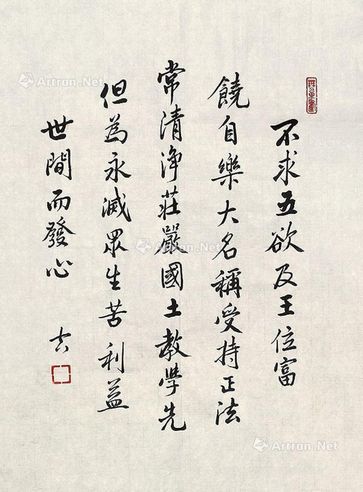 不求五欲及王位富
饒自樂大名稱受持正法
常清淨莊嚴國土教學先
但為永滅眾生苦利益
世間而發心
Artron.Net
Artron.Net
Artron.Net
Artron.Net